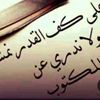 على كف القدر نمش
ولا ندري عن
المكتوب